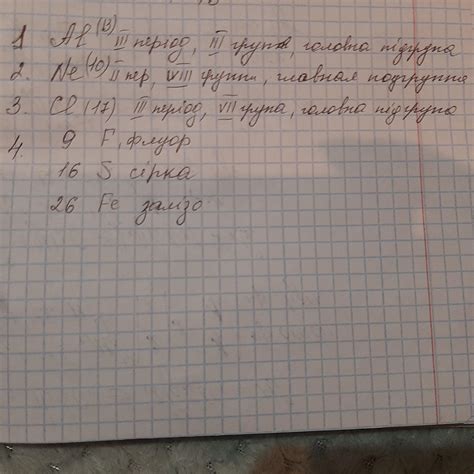 1 Al (13) III період, III група, головна підгрупа
2. Ne (10) II пер, VIII групп, главная подгруппа
3. Cl (17) III період, VII група, головна підгрупа
4. 9 F, флуор
16 S сірка
26 Fe залізо